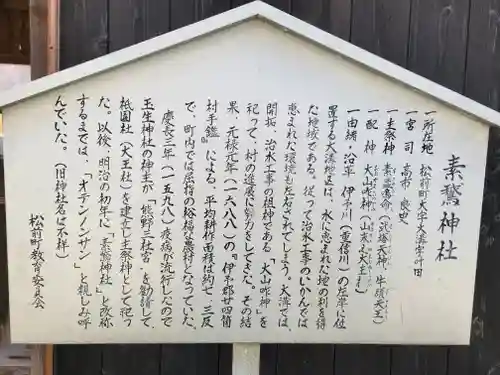 素鵞神社
一所在地 松前町大字大溝字竹田
一宮司 高市良史
一主祭神 素鵞鳴命(武塔天神、牛頭天王)
一配神 大山咋神(山末之大主神)
一由緒・沿革 伊予川(重信川)の左岸に位
置する大溝地区は、水に恵まれた地の利を得
た地域である。従って治水工事のいかんでは、
恵まれた環境も左右されてしまう。大溝では、
開拓、治水工事の根神である「大山咋神」を
祀って、村の進展に努力をしてきた。その結
果、元禄元年(一六八八)の『伊予郡廿四箇
村手鑑』による、平均耕作面積は約七・三反
で、町内では屈指の裕福な農村となっていた。
慶長三年(一五九八)疫病が流行したので
玉生神社の神主が、熊野三社宮を勧請して
祇園社(天王社)を建立し主祭神として祀っ
た。以後、明治の初年に「素鵞神社」と改称
するまでは、「オテンノンサン」と親しみ呼
んでいた。(旧神社名は不祥)
松前町教育委員会